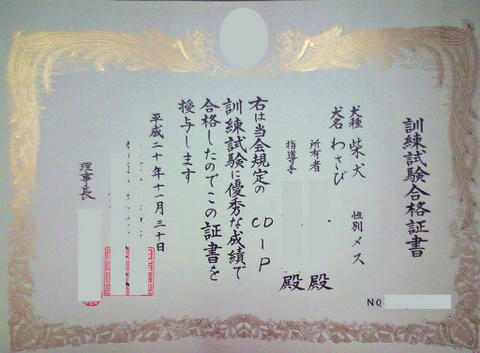 訓練試験合格証書
犬種 柴犬 性別 メス
犬名 わさび
所有者 殿
指導手 殿
右は当会規定の CDIP
訓練試験に優秀な成績で
合格したのでこの証書を
授与します
平成二十年十一月三十日
理事長
NO